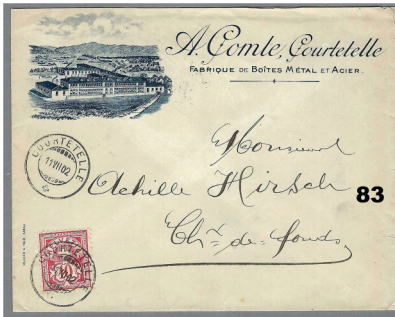 A. Comte, Courtetelle
FABRIQUE DE BOÎTES MÉTAL ET ACIER.
COURTETELLE
11 VII 02
Monsieur
Achille Hirsch
83
Chx-de-fonds
COURTETELLE